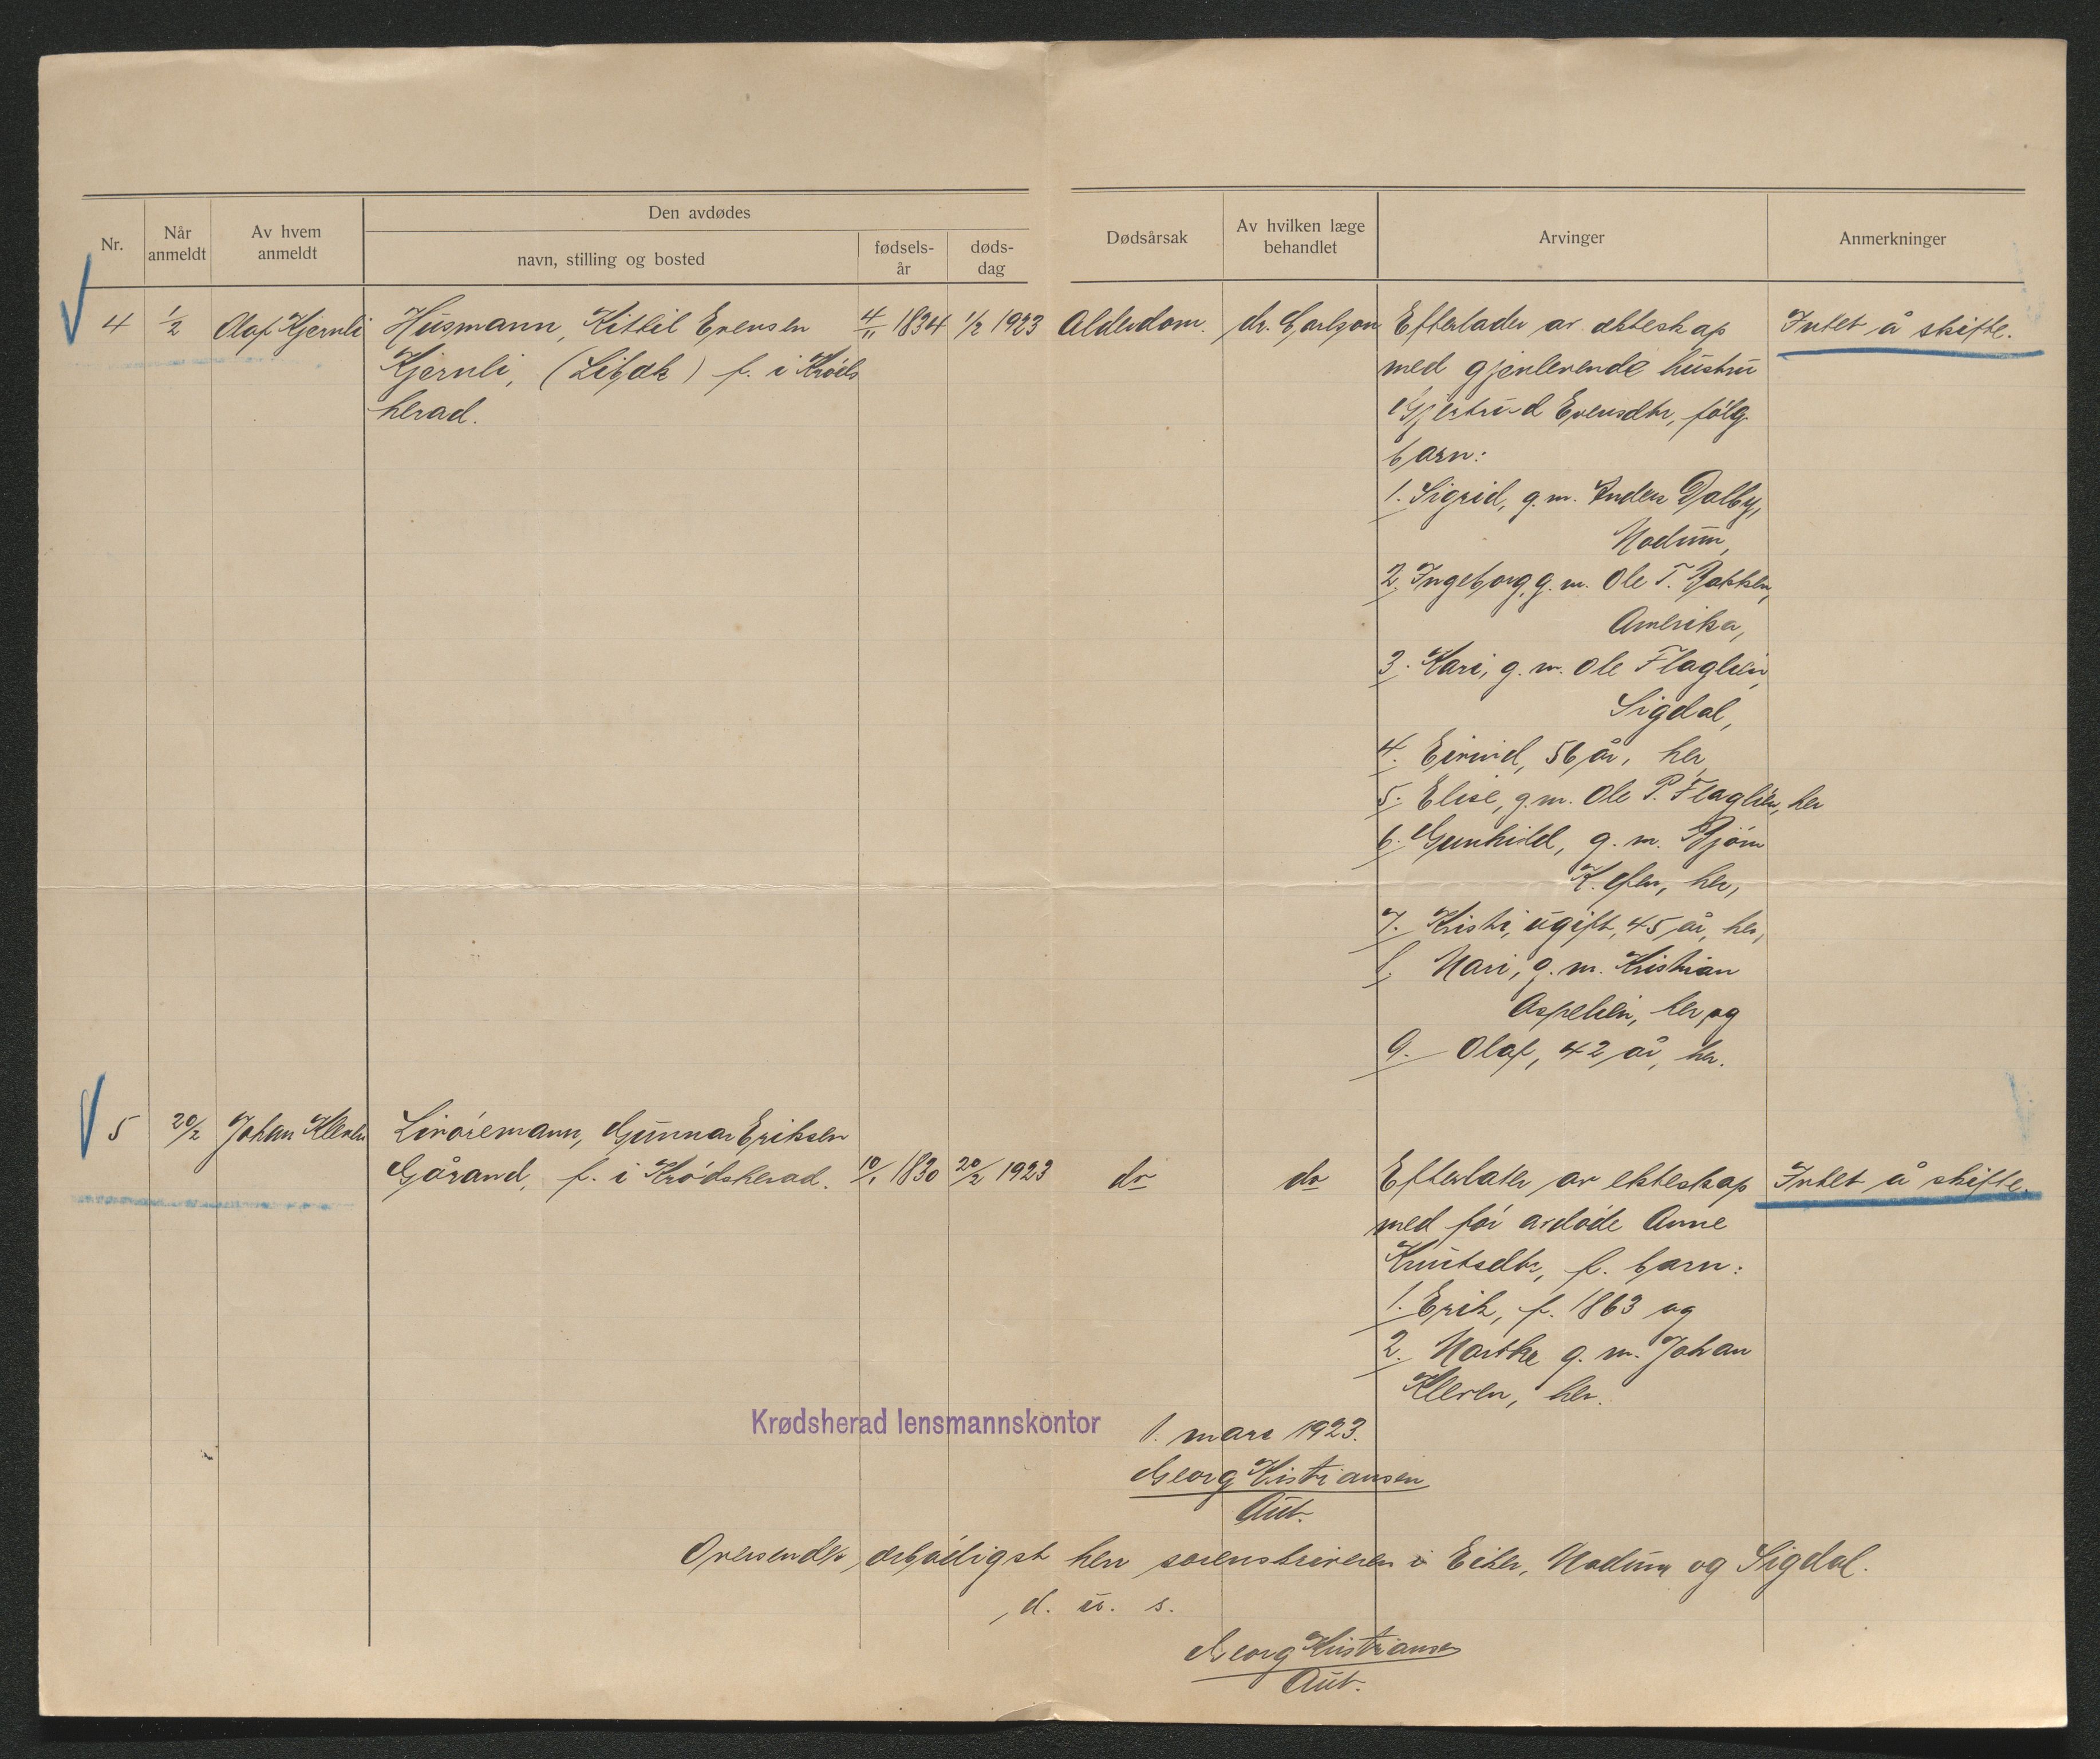 Den avdødes
Nr. Når anmeldt Av hvem anmeldt navn, stilling og bosted fødsels-år døds-dag Dødsårsak Av hvilken læge behandlet Arvinger Anmerkninger
4 1/2 Olaf Kjernli Husmann, Kittil Evensen 4/11 1834 1/2 1923 Alderdom. dr. Carlson Efterlader av ekteskap Intet å skifte.
Kjernli, (Libæk) f. i Krøds med gjenlevende hustru
herad. Gjertrud Evensdtr, følg.
barn:
1. Sigrid, g. m. Anders Dalby,
Modum,
2. Ingeborg, g. m. Ole T. Bakken,
Amerika,
3. Kari, g. m. Ole Flaglien,
Sigdal,
4. Eivind, 56 år, her,
5. Elise, g. m. Ole P. Flaglien, her
6. Gunhild, g. m. Bjørn
K. her,
7. Kristi, ugift, 45 år, her,
8. Mari, g. m. Kristian
Aspelien, her og
9. Olaf, 42 år, her.
5 20/2 Johan Kleven Livøremann, Gunnar Eriksen
Gårand, f. i Krødsherad. 10/1 1830 20/2 1923 do do Efterlater av ekteskap Intet å skifte.
med før avdøde Anne
Knutsdtr, f. barn:
1. Erik, f. 1863 og
2. Marthe g. m. Johan
Kleven, her.
Krødsherad lensmannskontor 1. mars 1923.
Georg Kristiansen
Aut.
Oversendes ærbødigst herr sorenskriveren i Eiker, Modum og Sigdal.
d. u. s.
Georg Kristiansen
Aut.